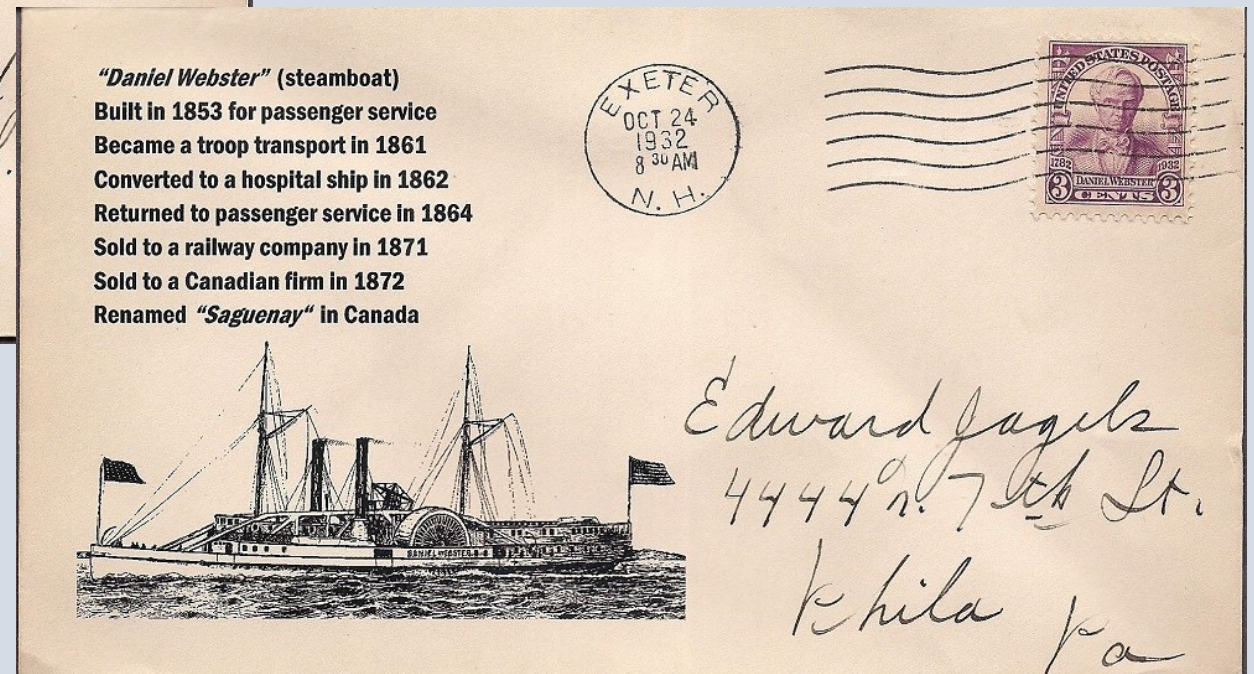 “Daniel Webster” (steamboat)
Built in 1853 for passenger service
Became a troop transport in 1861
Converted to a hospital ship in 1862
Returned to passenger service in 1864
Sold to a railway company in 1871
Sold to a Canadian firm in 1872
Renamed “Saguenay“ in Canada
EXETER
OCT 24
1932
8 30 AM
N. H.
UNITED STATES POSTAGE
1782 1932
DANIEL WEBSTER
3 CENTS 3
DANIEL WEBSTER
Edward Jagels
4444 n. 7th St.
Phila
Pa